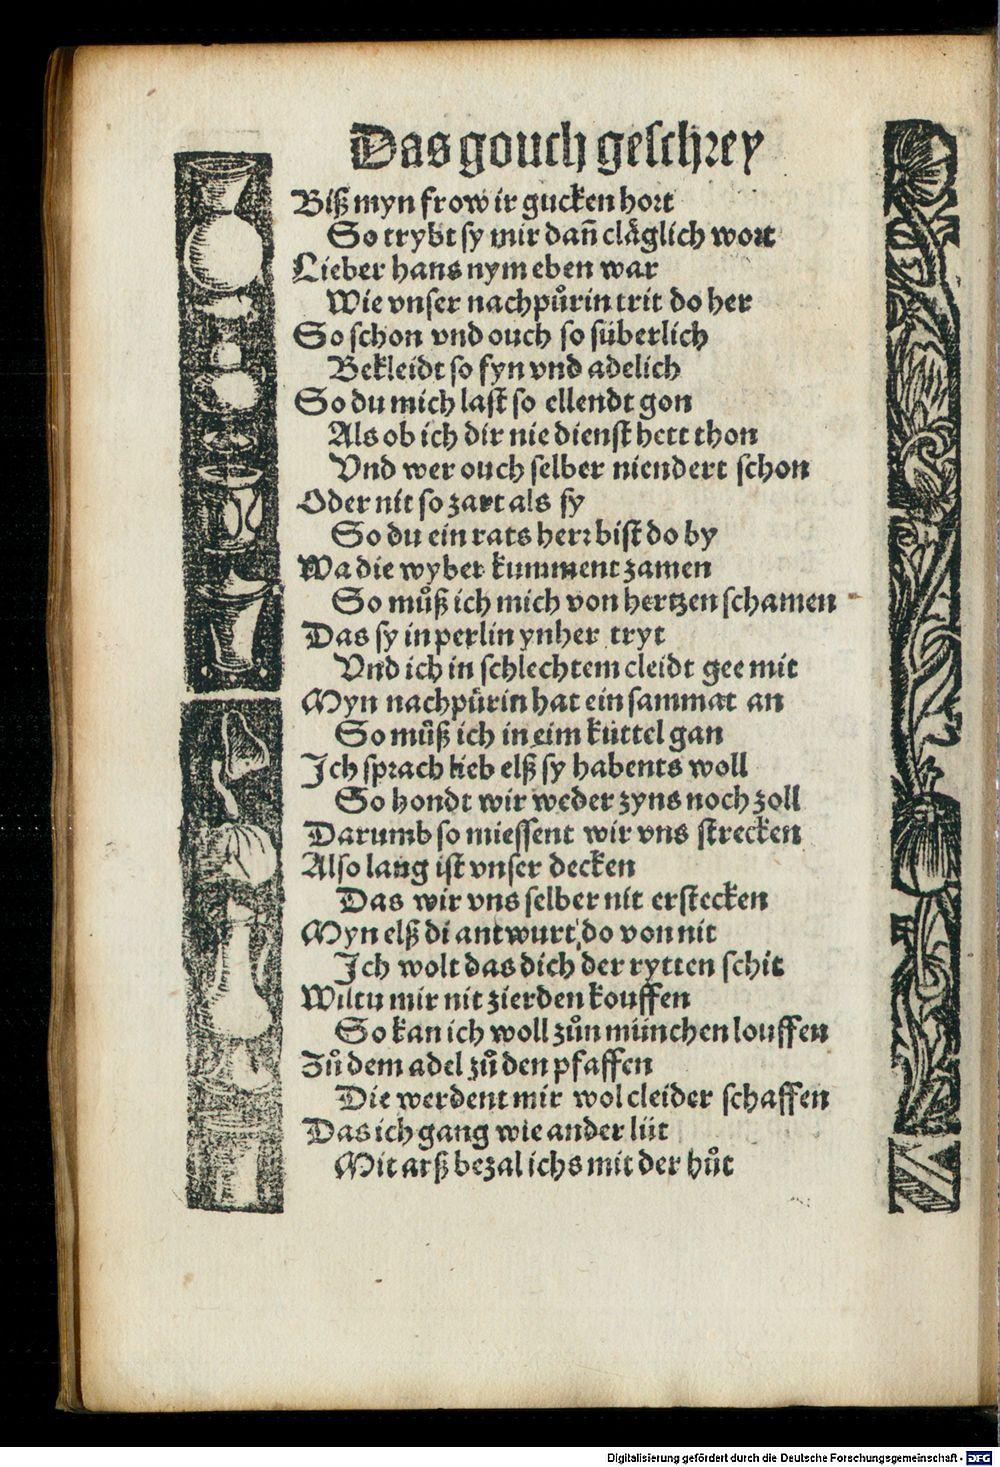 Das gouch geschrey
Biß myn frow ir gucken hort
So trybt sy mir dañ cläglich wort
Lieber hans nym eben war
Wie vnser nachpůrin trit do her
So schon vnd ouch so süberlich
Bekleidt so fyn vnd adelich
So du mich last so ellendt gon
Als ob ich dir nie dienst hett thon
Vnd wer ouch selber niendert schon
Oder nit so zart als sy
So du ein rats herr bist do by
Wa die wyber kumment zamen
So můß ich mich von hertzen schamen
Das sy in perlin ynher tryt
Vnd ich in schlechtem cleidt gee mit
Myn nachpürin hat ein sammat an
So můß ich in eim küttel gan
Jch sprach lieb elß sy habents woll
So hondt wir weder zyns noch zoll
Darumb so miessent wir vns strecken
Also lang ist vnser decken
Das wir vns selber nit erstecken
Myn elß di antwurt do von nit
Jch wolt das dich der rytten schit
Wiltu mir nit zierden kouffen
So kan ich woll zůn münchen louffen
Zů dem adel zů den pfaffen
Die werdent mir wol cleider schaffen
Das ich gang wie ander lüt
Mit arß bezal ichs mit der hůt
Digitalisierung gefördert durch die Deutsche Forschungsgemeinschaft - DFG